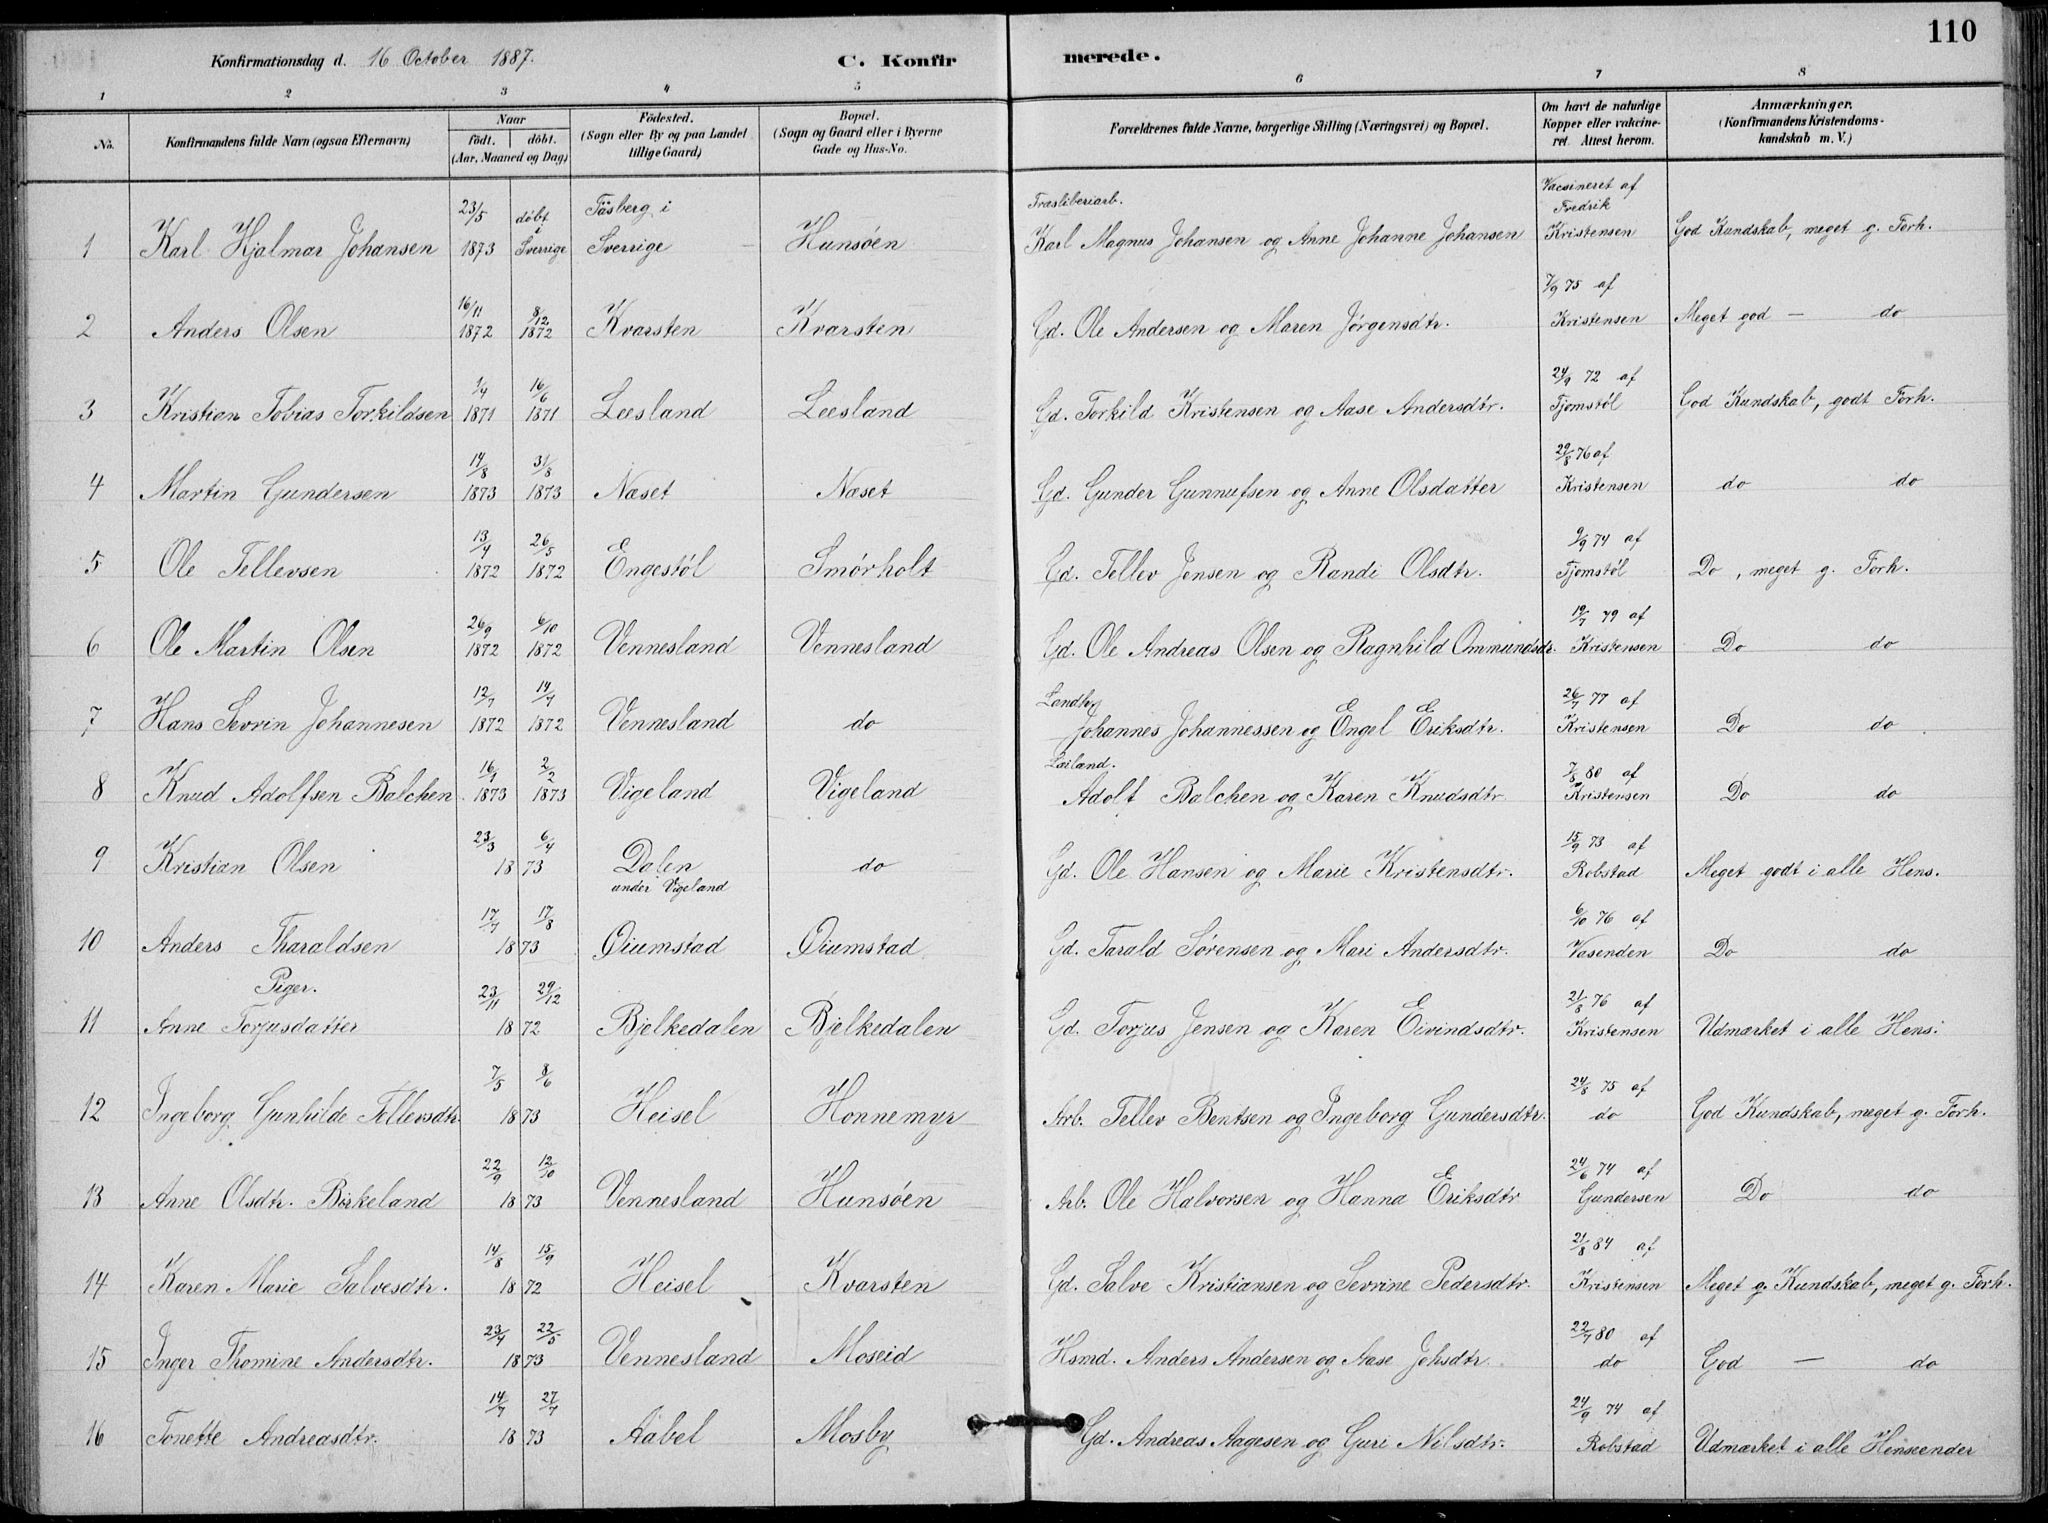 110
Konfirmationsdag d. 16 October 1887. C. Konfirmerede.
1 2 3 4 5 6 7 8
No. | Konfirmandens fulde Navn (ogsaa Efternavn) | Naar födt. döbt. (Aar, Maaned og Dag) | Födested. (Sogn eller By og paa Landet tillige Gaard) | Bopæl. (Sogn og Gaard eller i Byerne Gade og Hus-No. | Forældrenes fulde Navne, borgerlige Stilling (Næringsvei) og Bopæl. | Om havt de naturlige Kopper eller vakcineret. Attest herom. | Anmærkninger. (Konfirmandens Kristendomskundskab m. V.)
1 Karl Hjalmar Johansen | 23/5 1873 | döbt i Sverrige | Täsberg i Sverrige | Hunsøen | Træsliberiarb. Karl Magnus Johansen og Anne Johanne Johansen | Vaccineret af Fredrik Kristensen | God Kundskab, meget g. Forh.
2 Anders Olsen | 16/11 1872 | 8/12 1872 | Kvarsten | Kvarsten | Gd. Ole Andersen og Maren Jörgensdtr. | 7/9 75 af Kristensen | Meget god — do
3 Kristian Tobias Torkildsen | 1/4 1871 | 16/6 1871 | Leesland | Leesland | Gd. Torkild Kristensen og Aase Andersdtr. | 24/9 72 af Tjomstöl | God Kundskab, godt Forh.
4 Martin Gundersen | 14/8 1873 | 31/8 1873 | Næset | Næset | Gd. Gunder Gunnufsen og Anne Olsdatter | 29/8 76 af Kristensen | do do
5 Ole Tellevsen | 13/4 1872 | 26/5 1872 | Engestöl | Smörholt | Gd. Tellev Jensen og Randi Olsdtr. | 9/9 74 af Tjomstöl | Do, meget g. Forh.
6 Ole Martin Olsen | 26/9 1872 | 6/10 1872 | Vennesland | Vennesland | Gd. Ole Andreas Olsen og Ragnhild Ommundsdtr. | 19/7 79 af Kristensen | Do do
7 Hans Sevrin Johannesen | 12/7 1872 | 14/7 1872 | Vennesland | do | Johannes Johannessen og Engel Eriksdtr. | 26/7 77 af Kristensen | Do do
8 Knud Adolfsen Balchen | 16/1 1873 | 2/2 1873 | Vigeland | Vigeland | Adolf Balchen og Karen Knudsdtr. | 7/8 80 af Kristensen | Do do
9 Kristian Olsen | 23/3 | 6/4 1873 | Dalen under Vigeland | do | Gd. Ole Hansen og Marie Kristensdtr. | 15/9 73 af Robstad | Meget godt i alle Hens.
10 Anders Tharaldsen | 17/7 | 17/8 1873 | Øiumstad | Øiumstad | Gd. Tarald Sørensen og Mari Andersdtr. | 6/10 76 af Vasenden | Do do
Piger.
11 Anne Torjusdatter | 23/11 | 29/12 1872 | Bjelkedalen | Bjelkedalen | Gd. Torjus Jensen og Karen Eivindsdtr. | 21/8 76 af Kristensen | Udmærket i alle Hens:
12 Ingeborg Gunhilde Tellevsdtr. | 7/5 | 8/6 1873 | Heisel | Honnemyr | Arb. Tellev Bentsen og Ingeborg Gundersdtr. | 24/8 75 af do | God Kundskab, meget g. Forh.
13 Anne Olsdtr. Birkeland | 22/9 | 12/10 1873 | Vennesland | Hunsøen | Arb. Ole Halvorsen og Hanna Eriksdtr | 24/6 74 af Gundersen | Do do
14 Karen Marie Salvesdtr. | 14/8 | 15/9 1872 | Heisel | Kvarsten | Gd. Salve Kristiansen og Sevrine Pedersdtr. | 21/8 84 af Kristensen | Meget g. Kundskab, meget g. Forh.
15 Inger Thomine Andersdtr. | 23/4 | 22/5 1873 | Vennesland | Moseid | Hsmd. Anders Andersen og Aase Johsdtr. | 22/7 80 af do | God — do
16 Tonette Andreasdtr. | 14/7 | 27/7 1873 | Aabel | Mosby | Gd. Andreas Aagesen og Guri Nilsdtr. | 24/9 74 af Robstad | Udmærket i alle Henseender